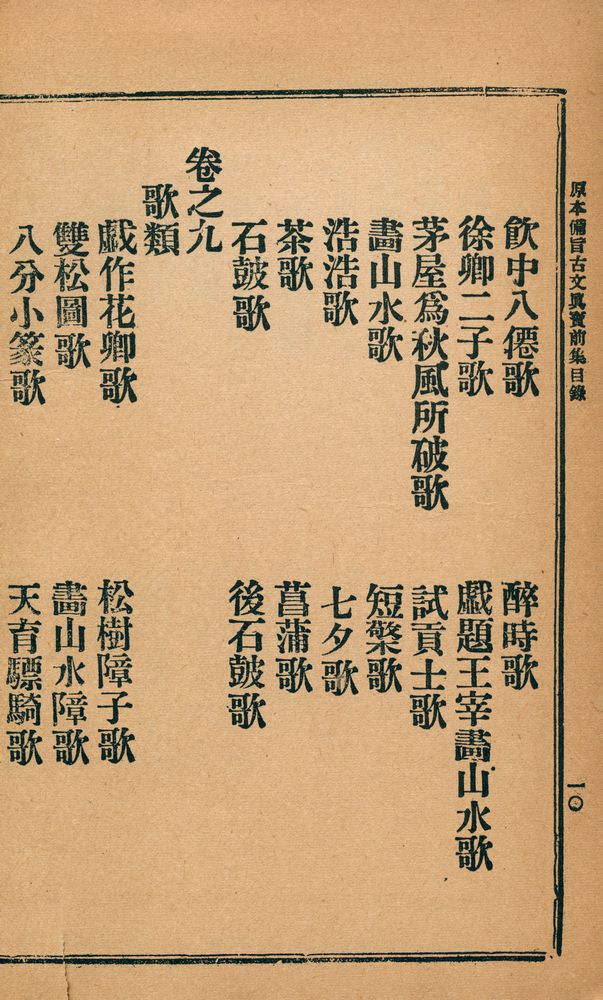 原本備旨古文眞寶前集目錄
一〇
飮中八僊歌
醉時歌
徐卿二子歌
戱題王宰畵山水歌
茅屋爲秋風所破歌
試貢士歌
畵山水歌
短檠歌
浩浩歌
七夕歌
茶歌
菖蒲歌
石鼓歌
後石鼓歌
卷之九
歌類
戱作花卿歌
松樹障子歌
雙松圖歌
畵山水障歌
八分小篆歌
天育驃騎歌